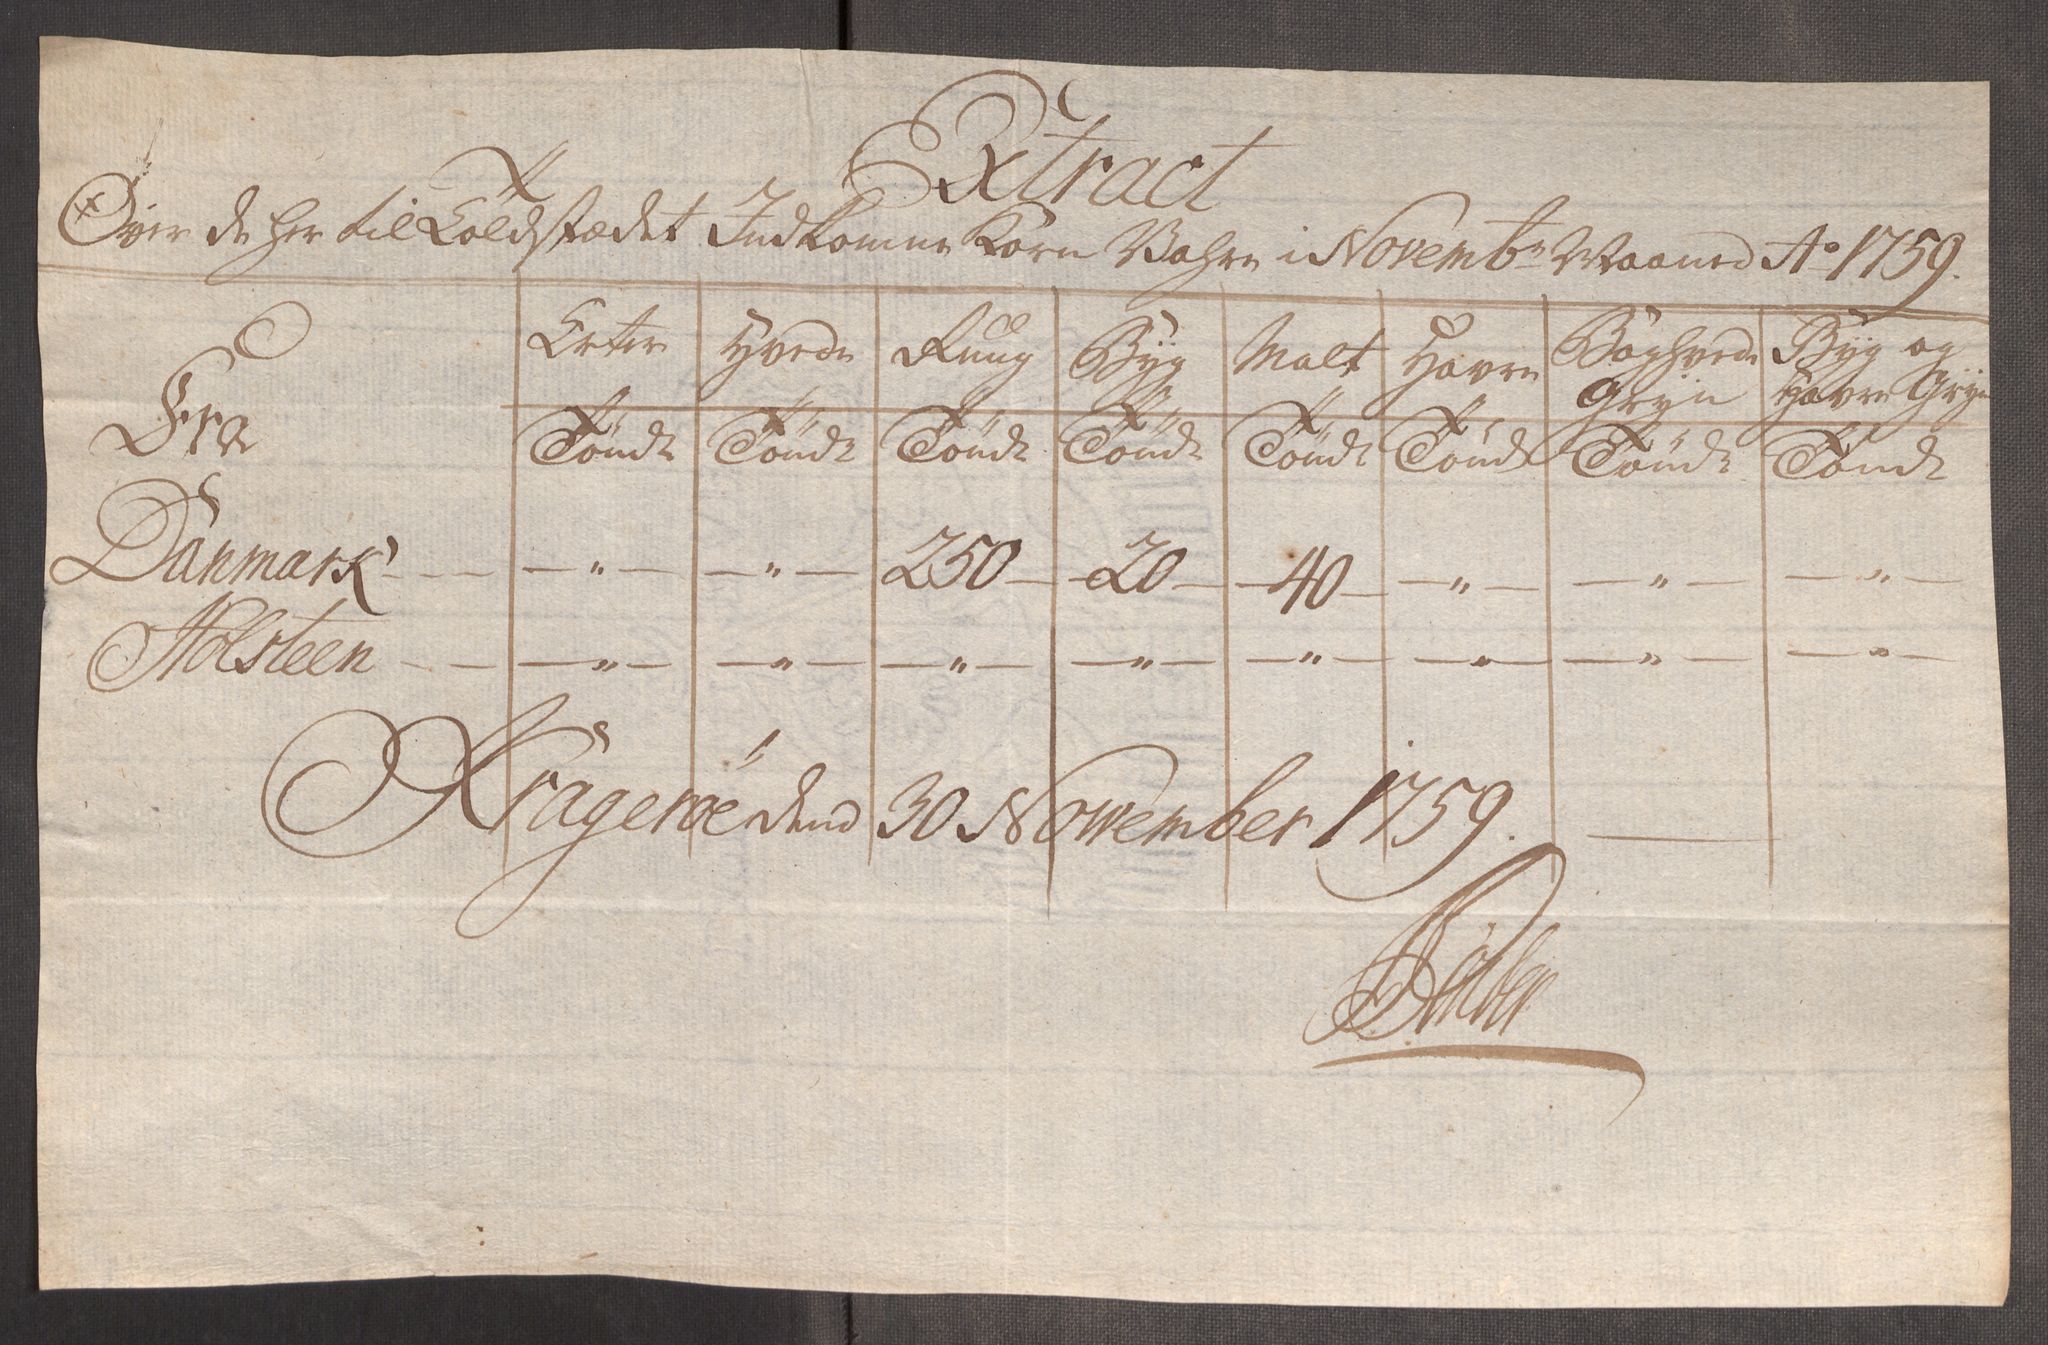 Extract
Over de her til Toldstædet Indkomne Korn Vahre i Novembr Maaned Ao 1759.
Fra Erter Hvede Rug Byg Malt Havre Boghvede Gryn Byg og Havre Gryn
Tønde Tønde Tønde Tønde Tønde Tønde Tønde Tønde
Danmark — " — — " — 250 — 20 — 40 — — " — — " — — " —
Holsteen — " — — " — — " — — " — — " — — " — — " — — " —
Krageröe dend 30 November 1759.